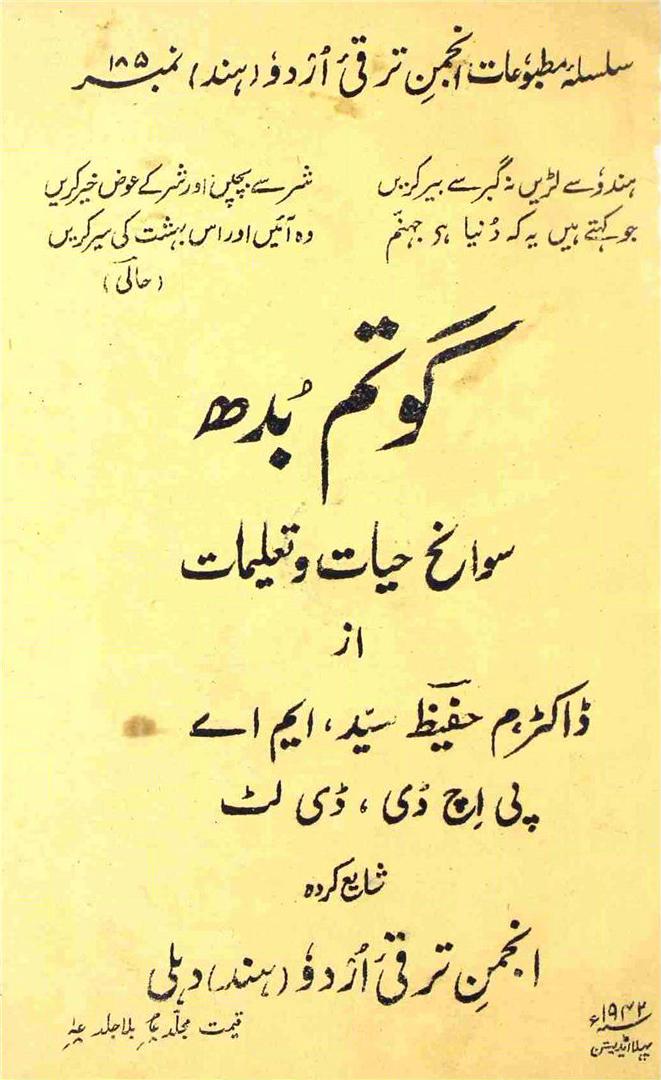 سلسلۂ مطبوعات انجمنِ ترقئ اُردؤ (ہند) نمبر ۱۸۵
ہندوٗ سے لڑیں نہ گبر سے بیر کریں شر سے بچیں اور شر کے عوض خیر کریں
جو کہتے ہیں یہ کہ دُنیا ہی جہنّم وہ آئیں اور اس بہشت کی سیر کریں
(حالی)
گوتم بُدھ
سوانح حیات و تعلیمات
از
ڈاکٹر م حفیظ سیّد، ایم اے
پی اِچ ڈی، ڈی لٹ
شایع کردہ
انجمنِ ترقئ اُردؤ (ہند) دہلی
سنہ ۱۹۴۲ء
پہلا اڈیشن
قیمت مجلّد بلا جلد